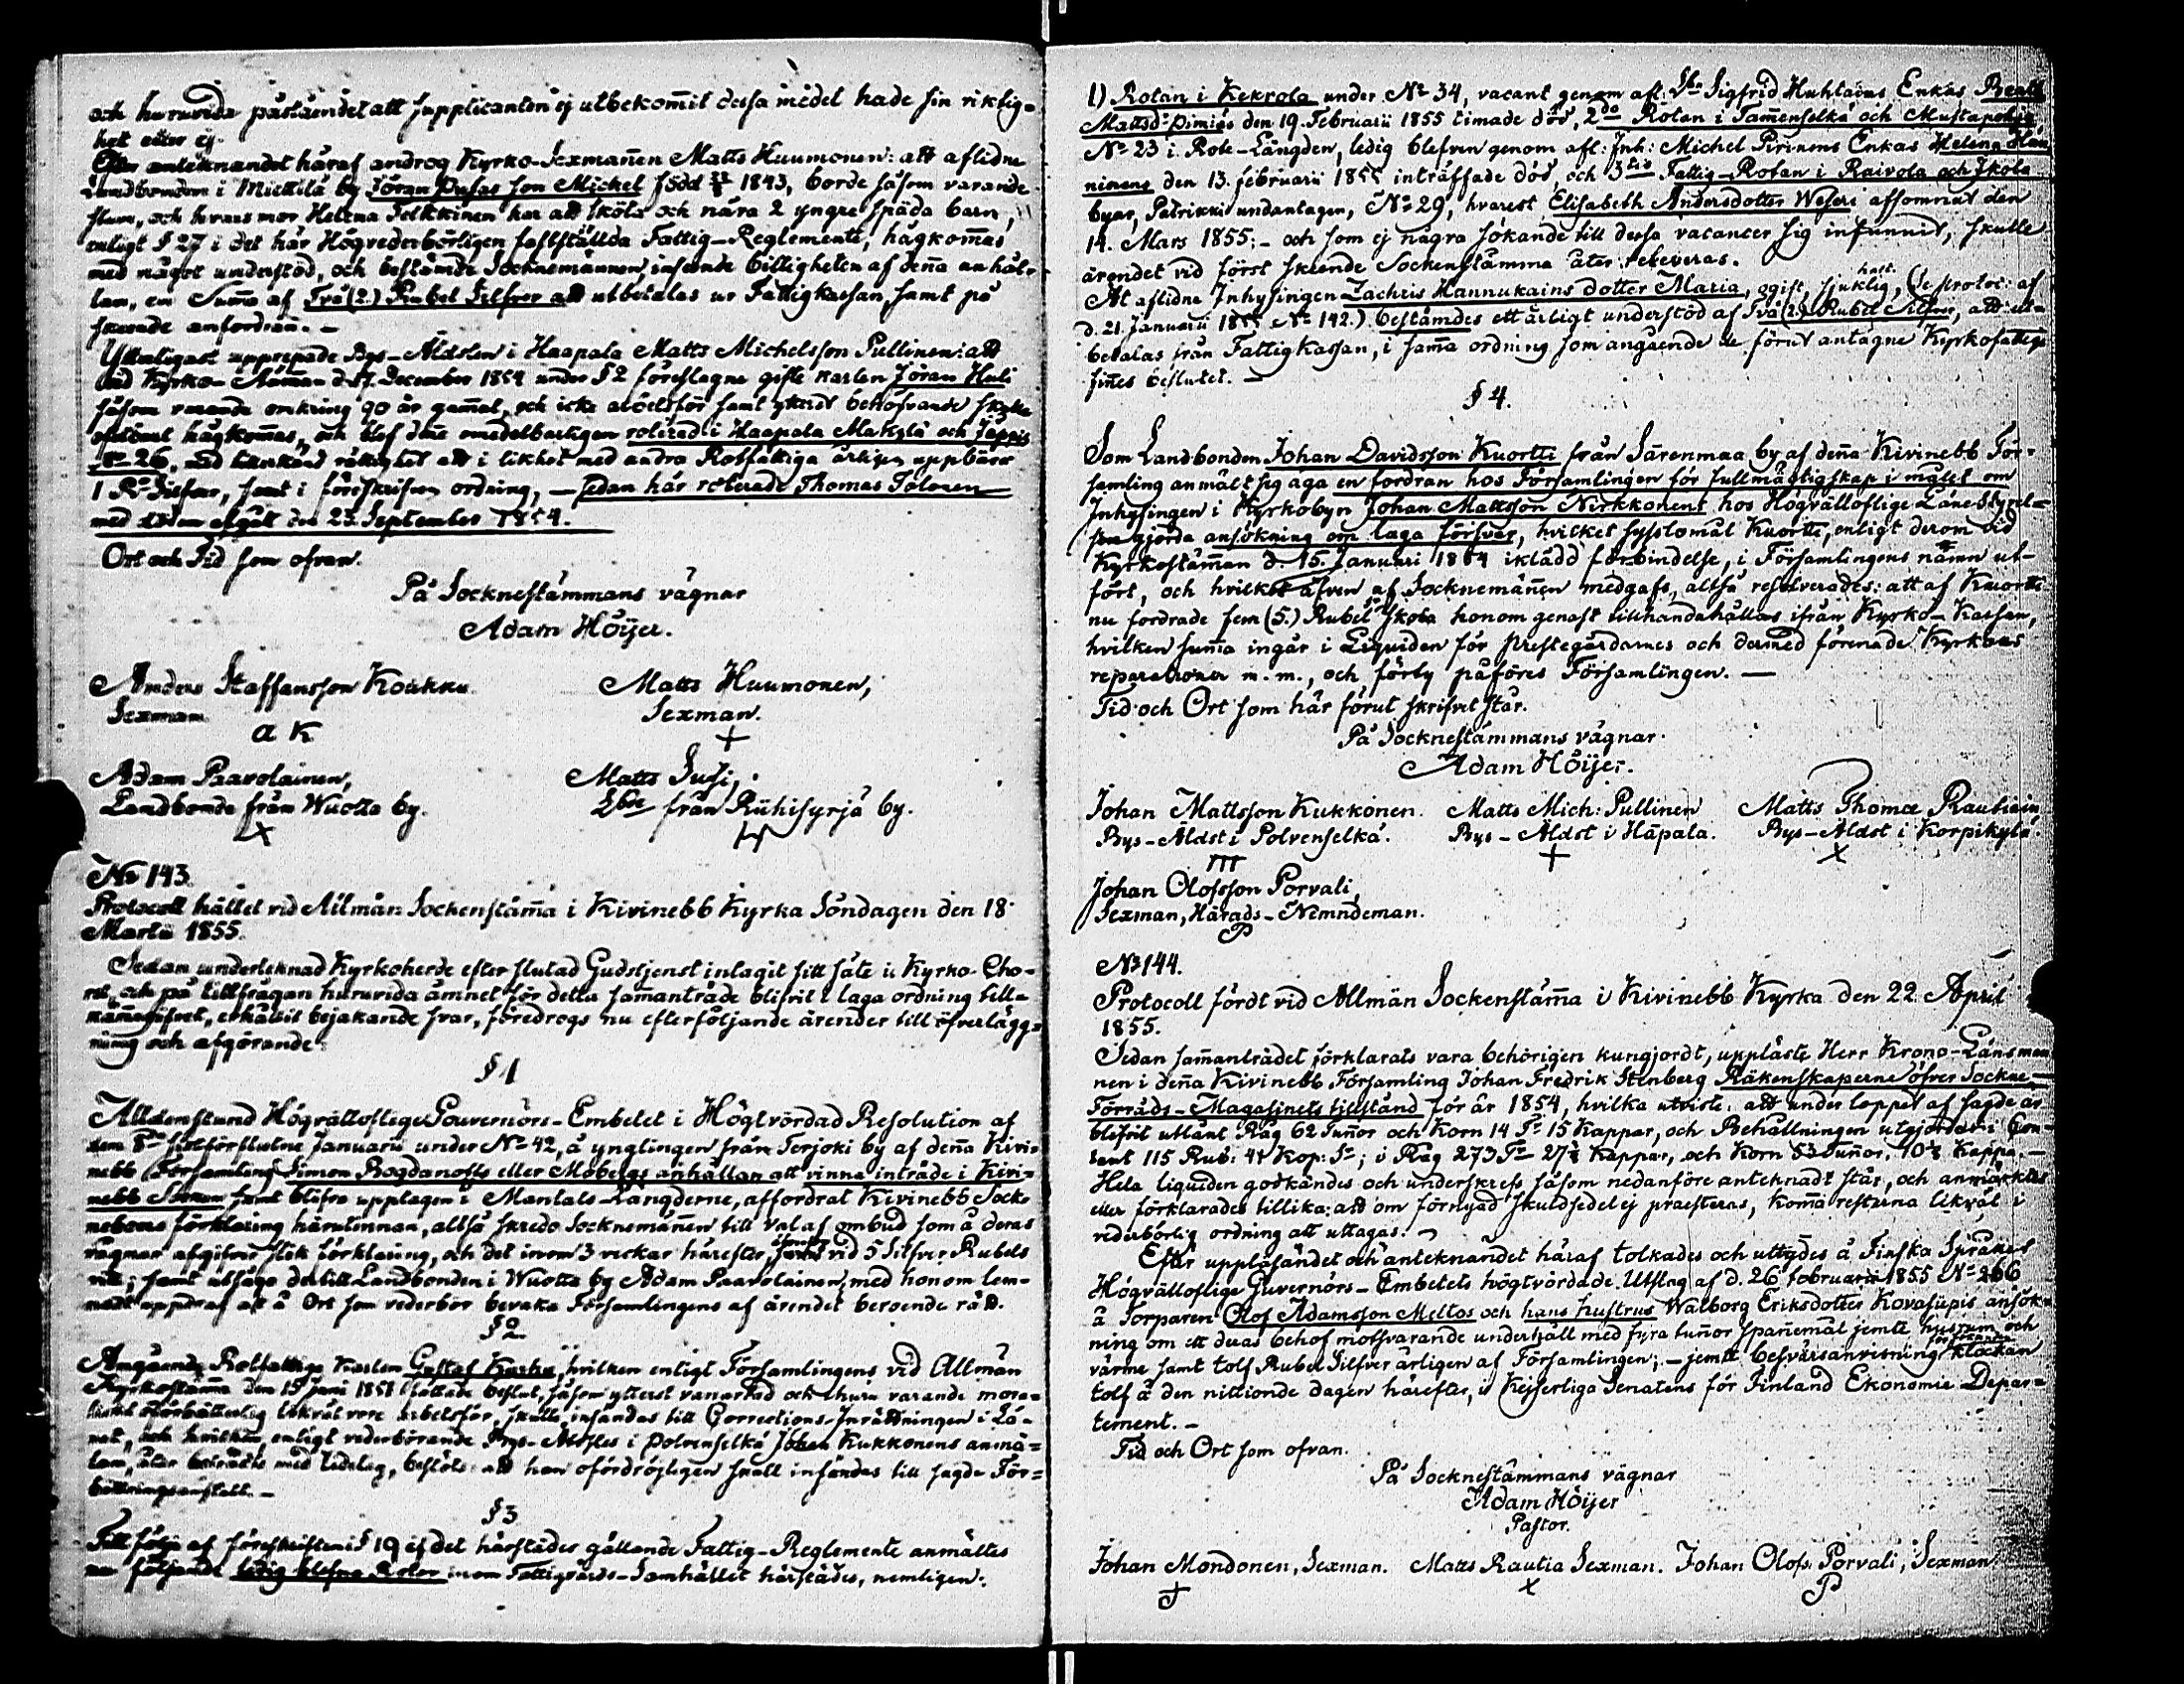 och huruvida påståendet att supplicanten ej utbekommit dessa medel hade sin riktig-
het eller ej.
Efter antecknandet häraf androg Kyrko-Sexmannen Matts Huumonen: att aflidne
Landbonden i Miettilä by Jöran Pusas son Michel född 1843, borde såsom varande
stum, och hvars mor Helena Telkkinen har att sköta och nära 2 yngre späda barn,
enligt § 27 i det här Högvederbörligen fastställda Fattig-Reglemente, hågkommas
med något understöd, och bestämde Socknemännen, inseende billigheten af denna anhål-
lan, en Summa af Två (2.) Rubel Silfver att utbetalas ur Fattigkassan samt på
skeende anfordran. -
Ytterligast upprepade Bys-Äldsten i Haapala Matts Michelsson Pullinen: att
vid Kyrko-Stämman d. 17. December 1854 under § 2 föreslagne gifte karlen Jöran Huli
såsom varande omkring 90 år gammal, och icke arbetsför samt ytterst behöfvande skulle
hågkommas, och blef dene omedelbarligen roterad i Haapala Matkylä och Jäppis
No 26, med rättighet att i likhet med andra Rotfattiga årligen uppbära
1 Ro Silfver, samt i föreskrifven ordning, — sedan här roterade Thomas Tolonen
med döden afgåt den 23. September 1854.
Ort och Tid som ofvan.
På Socknestämmans vägnar
Adam Höijer.
Anders Staffansson Koukku Matts Huumonen,
Sexman Sexman.
A K +
Adam Paavolainen, Matts Susi,
Landbonde från Wuotta by. Lbde från Riihisyrjä by.
No 143.
Protocoll hållet vid Allmän Sockenstämma i Kivinebb Kyrka Söndagen den 18
Martii 1855.
Sedan undertecknad Kyrkoherde efter slutad Gudstjenst intagit sitt säte i Kyrko-Cho-
ret, och på tillfrågan huruvida ämnet för detta sammanträde blifvit i laga ordning till-
kännagifvet, erhållit bejakande svar, föredrogs nu efterföljande ärender till öfverlägg-
ning och afgörande:
§ 1
Alldenstund Högvälloflige Gouvernörs-Embetet i Högtvördad Resolution af
den 8de sistförflutne Januarii under No 42, å ynglingen från Terjoki by af denna Kivi-
nebb Församling Simon Bogdanoffs eller Mobergs anhållan att vinna inträde i Kivi-
nebb Socken samt blifva upptagen i Mantals-Längderne, affordrat Kivinebb Socke-
neboers förklaring härutinnan, alltså skredo Socknemännen till val af ombud som å deras
vägnar afgifver slik förklaring, och det inom 3 veckar härefter, vid 5 Silfver Rubels
vite; samt utsågo dertill Landbonden i Wuotta by Adam Paavolainen, med honom lem-
nadt uppdrag att å Ort som vederbör bevaka Församlingens af ärendet beroende rätt.
§ 2.
Angående Rotfattige Karlen Gustaf Karhu, hvilken enligt Församlingens vid Allmän
Kyrkostämma den 15 Juni 1851 fattade beslut, såsom ytterst vanartad och ehuru varande mora-
liskt oförbätterlig likväl vore arbetsför, skulle insändas till Corrections-Inrättningen i Lä-
net, och hvilken enligt vederbörande Bys-Äldstes i Polvenselkä Johan Kukkonens anmä-
lan, åter beträdts med tidelag, beslöts att han ofördröjligen skall insändas till sagde För-
bättringsanstalt. -
§ 3
Till följe af föreskriften i § 19 uti det härstädes gällande Fattig-Reglemente anmältes
nu följande ledig blefne Rotor inom Fattigvårds-Samhället härstädes, nemligen:
1) Rotan i Kekrola under No 34, vacant genom afl: Lbo Sigfrid Huhtains Enkas Beata
Mattsdr Pimiäs den 19. Februarii 1855 timade död, 2do Rotan i Tammenselkä och Mustapohja
No 23 i Rote-Längden, ledig blefven genom afl: Inh: Michel Pirinens Enkas Helena Hän-
ninens den 13. februarii 1855 inträffade död, och 3tio Fattig-Rotan i Raivola och Ikola
byar, Patrikki undantagen, No 29, hvarest Elisabeth Andersdotter Weseri afsomnat den
14. Mars 1855; - och som ej några sökande till dessa vacancer sig infunnit, skulle
ärendet vid först skeende Sockenstämma åter releveras.
At aflidne Inhysingen Zachris Hannukains dotter Maria, ogift, sjuklig, (Se protoc: af
d. 21. Januarii 1855 No 142.) bestämdes ett årligt understöd af Två (2.) Rubel Silfver, att ut-
betalas från Fattigkassan, i samma ordning som angående de förut antagne Kyrkofattige
finnes beslutet. —
§ 4.
Som Landbonden Johan Davidsson Kuortti från Särenmaa by af denna Kivinebb För-
samling anmält sig äga en fordran hos Församlingen för fullmägtigskap i målet om
Inhysingen i Kyrkobyn Johan Mattsson Nirkkonens hos Högvälloflige Läne-Styrel-
sen gjorda ansökning om laga försvar, hvilket sysslomål Kuortti, enligt derom vid
Kyrkostämman d. 15. Januari 1854 iklädd förbindelse, i Församlingens namn ut-
fört, och hvilket äfven af Socknemännen medgafs, alltså resolverades: att af Kuortti
nu fordrade fem (5.) Rubel skola honom genast tillhandahållas ifrån Kyrko-Kassan,
hvilken summa ingår i Liquiden för Prestegårdarnes och dermed förenade Kyrkans
reparationer m. m., och förty påföres Församlingen. —
Tid och Ort som här förut skrifvet står.
På Socknestämmans vägnar
Adam Höijer.
Johan Mattsson Kukkonen. Matts Mich: Pullinen Matts Thomæ Rautiain
Bys-Äldst i Polvenselkä. Bys-Äldst i Hapala. Bys-Äldst i Korpikylä.
m + x
Johan Olofsson Porvali,
Sexman, Härads-Nämndeman.
P
No 144.
Protocoll fördt vid Allmän Sockenstämma i Kivinebb Kyrka den 22 April
1855.
Sedan sammanträdet förklarats vara behörigen kungjordt, uppläste Herr Krono-Länsman-
nen i denna Kivinebb Församling Johan Fredrik Stenberg Räkenskaperne öfver Sockne-
Förråds-Magasinets tillstånd för år 1854, hvilka utviste: att under loppet af sagde år
blifvit utlånt Råg 62 Tunnor och Korn 14 Tr 15 Kappar, och Behållningen utgjordes i Con-
tant 115 Rub: 44 Kop: Sr; i Råg 273 Tr 27½ Kappar, och Korn 53 Tunnor, 10½ Kappa. —
Hela liquiden godkändes och underskrefs såsom nedanföre antecknadt står, och anmärktes
eller förklarades tillika: att om förnyad skuldsedel ej praesteras, komma resterna likväl i
vederbörlig ordning att uttagas. ~
Efter uppläsandet och antecknandet häraf tolkades och uttydes å Finska Språket
Högvälloflige Guvernörs-Embetets högtvördade Utslag af d. 26 februarii 1855 No 266
å Torparen Olof Adamsson Meltos och hans hustrus Walborg Eriksdotter Kovasiipis ansök-
ning om ett deras behof motsvarande underhåll med fyra tunnor spannemål jemte husrum och
värme samt tolf Rubel Silfver årligen af Församlingen; - jemte besvärsanvisning klockan
tolf å den nittionde dagen härefter, i Kejserliga Senatens för Finland Ekonomie Depar-
tement. -
Tid och Ort som ofvan.
På Socknestämmans vägnar
Adam Höijer
Pastor.
Johan Mondonen, Sexman. Matts Rautia Sexman. Johan Olofs: Porvali, Sexman
+ x P